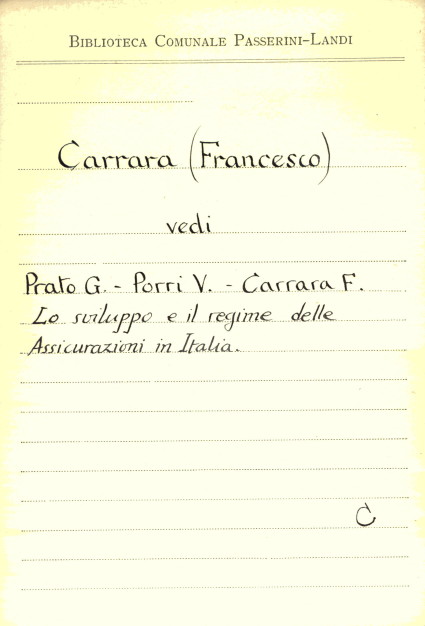 Biblioteca Comunale Passerini-Landi
Carrara (Francesco)
vedi
Prato G. - Porri V. - Carrara F.
Lo sviluppo e il regime delle
Assicurazioni in Italia.
C